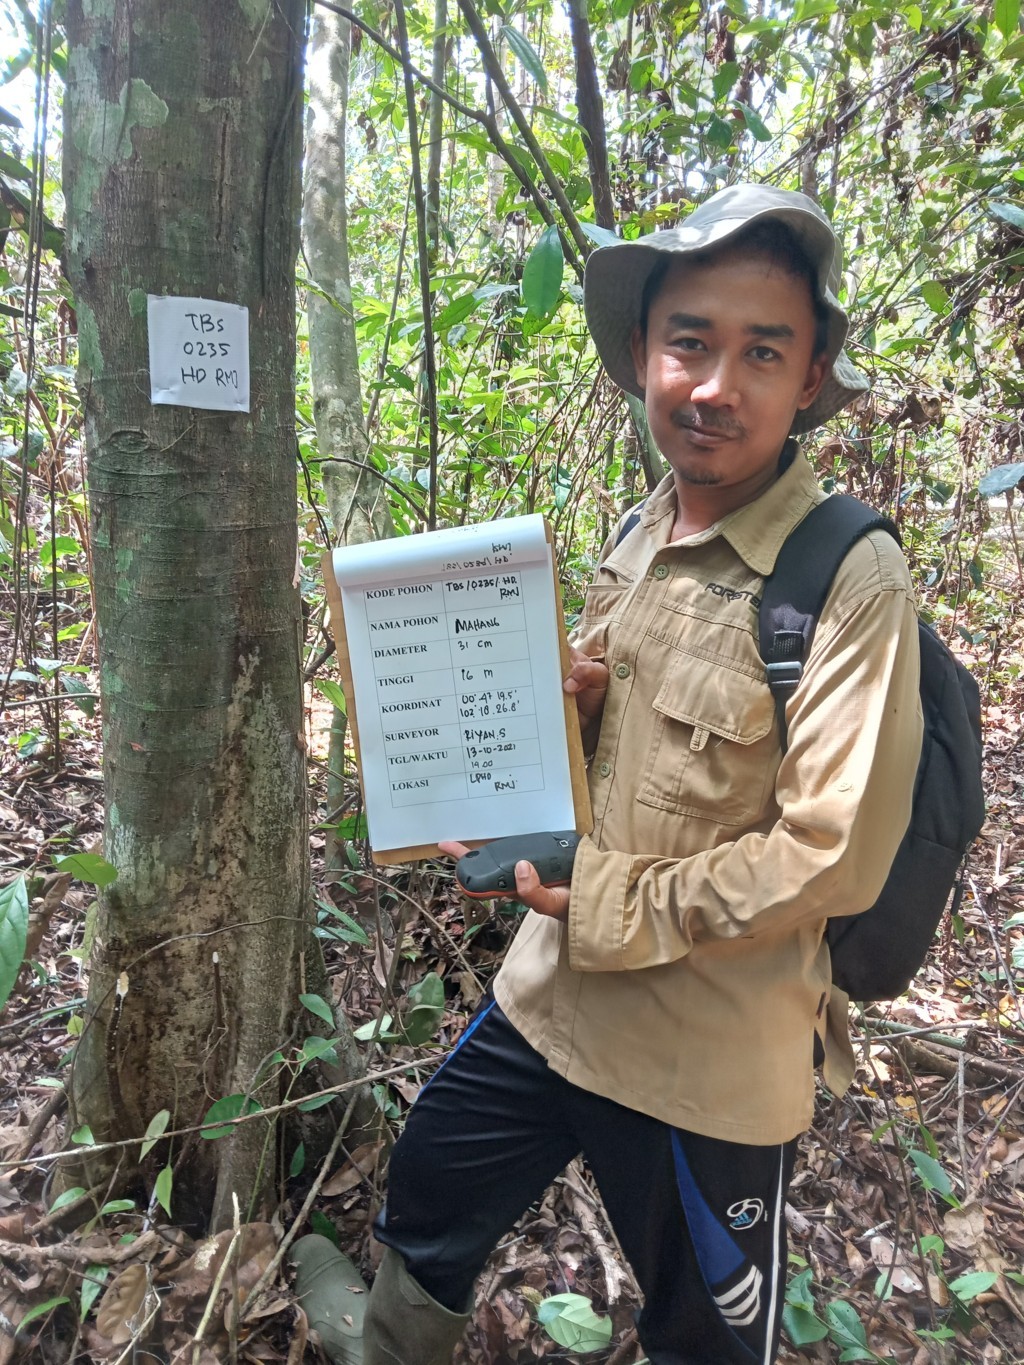 TBS
0235
HD RMJ
KODE POHON TBS/0235/HD
RMJ
NAMA POHON MAHANG
DIAMETER 31 cm
TINGGI 16 m
KOORDINAT 00°.47'.19.5'
102°.18'.26.8'
SURVEYOR RIYAN.S
TGL/WAKTU 13-10-2021
LOKASI LPHD
RMJ